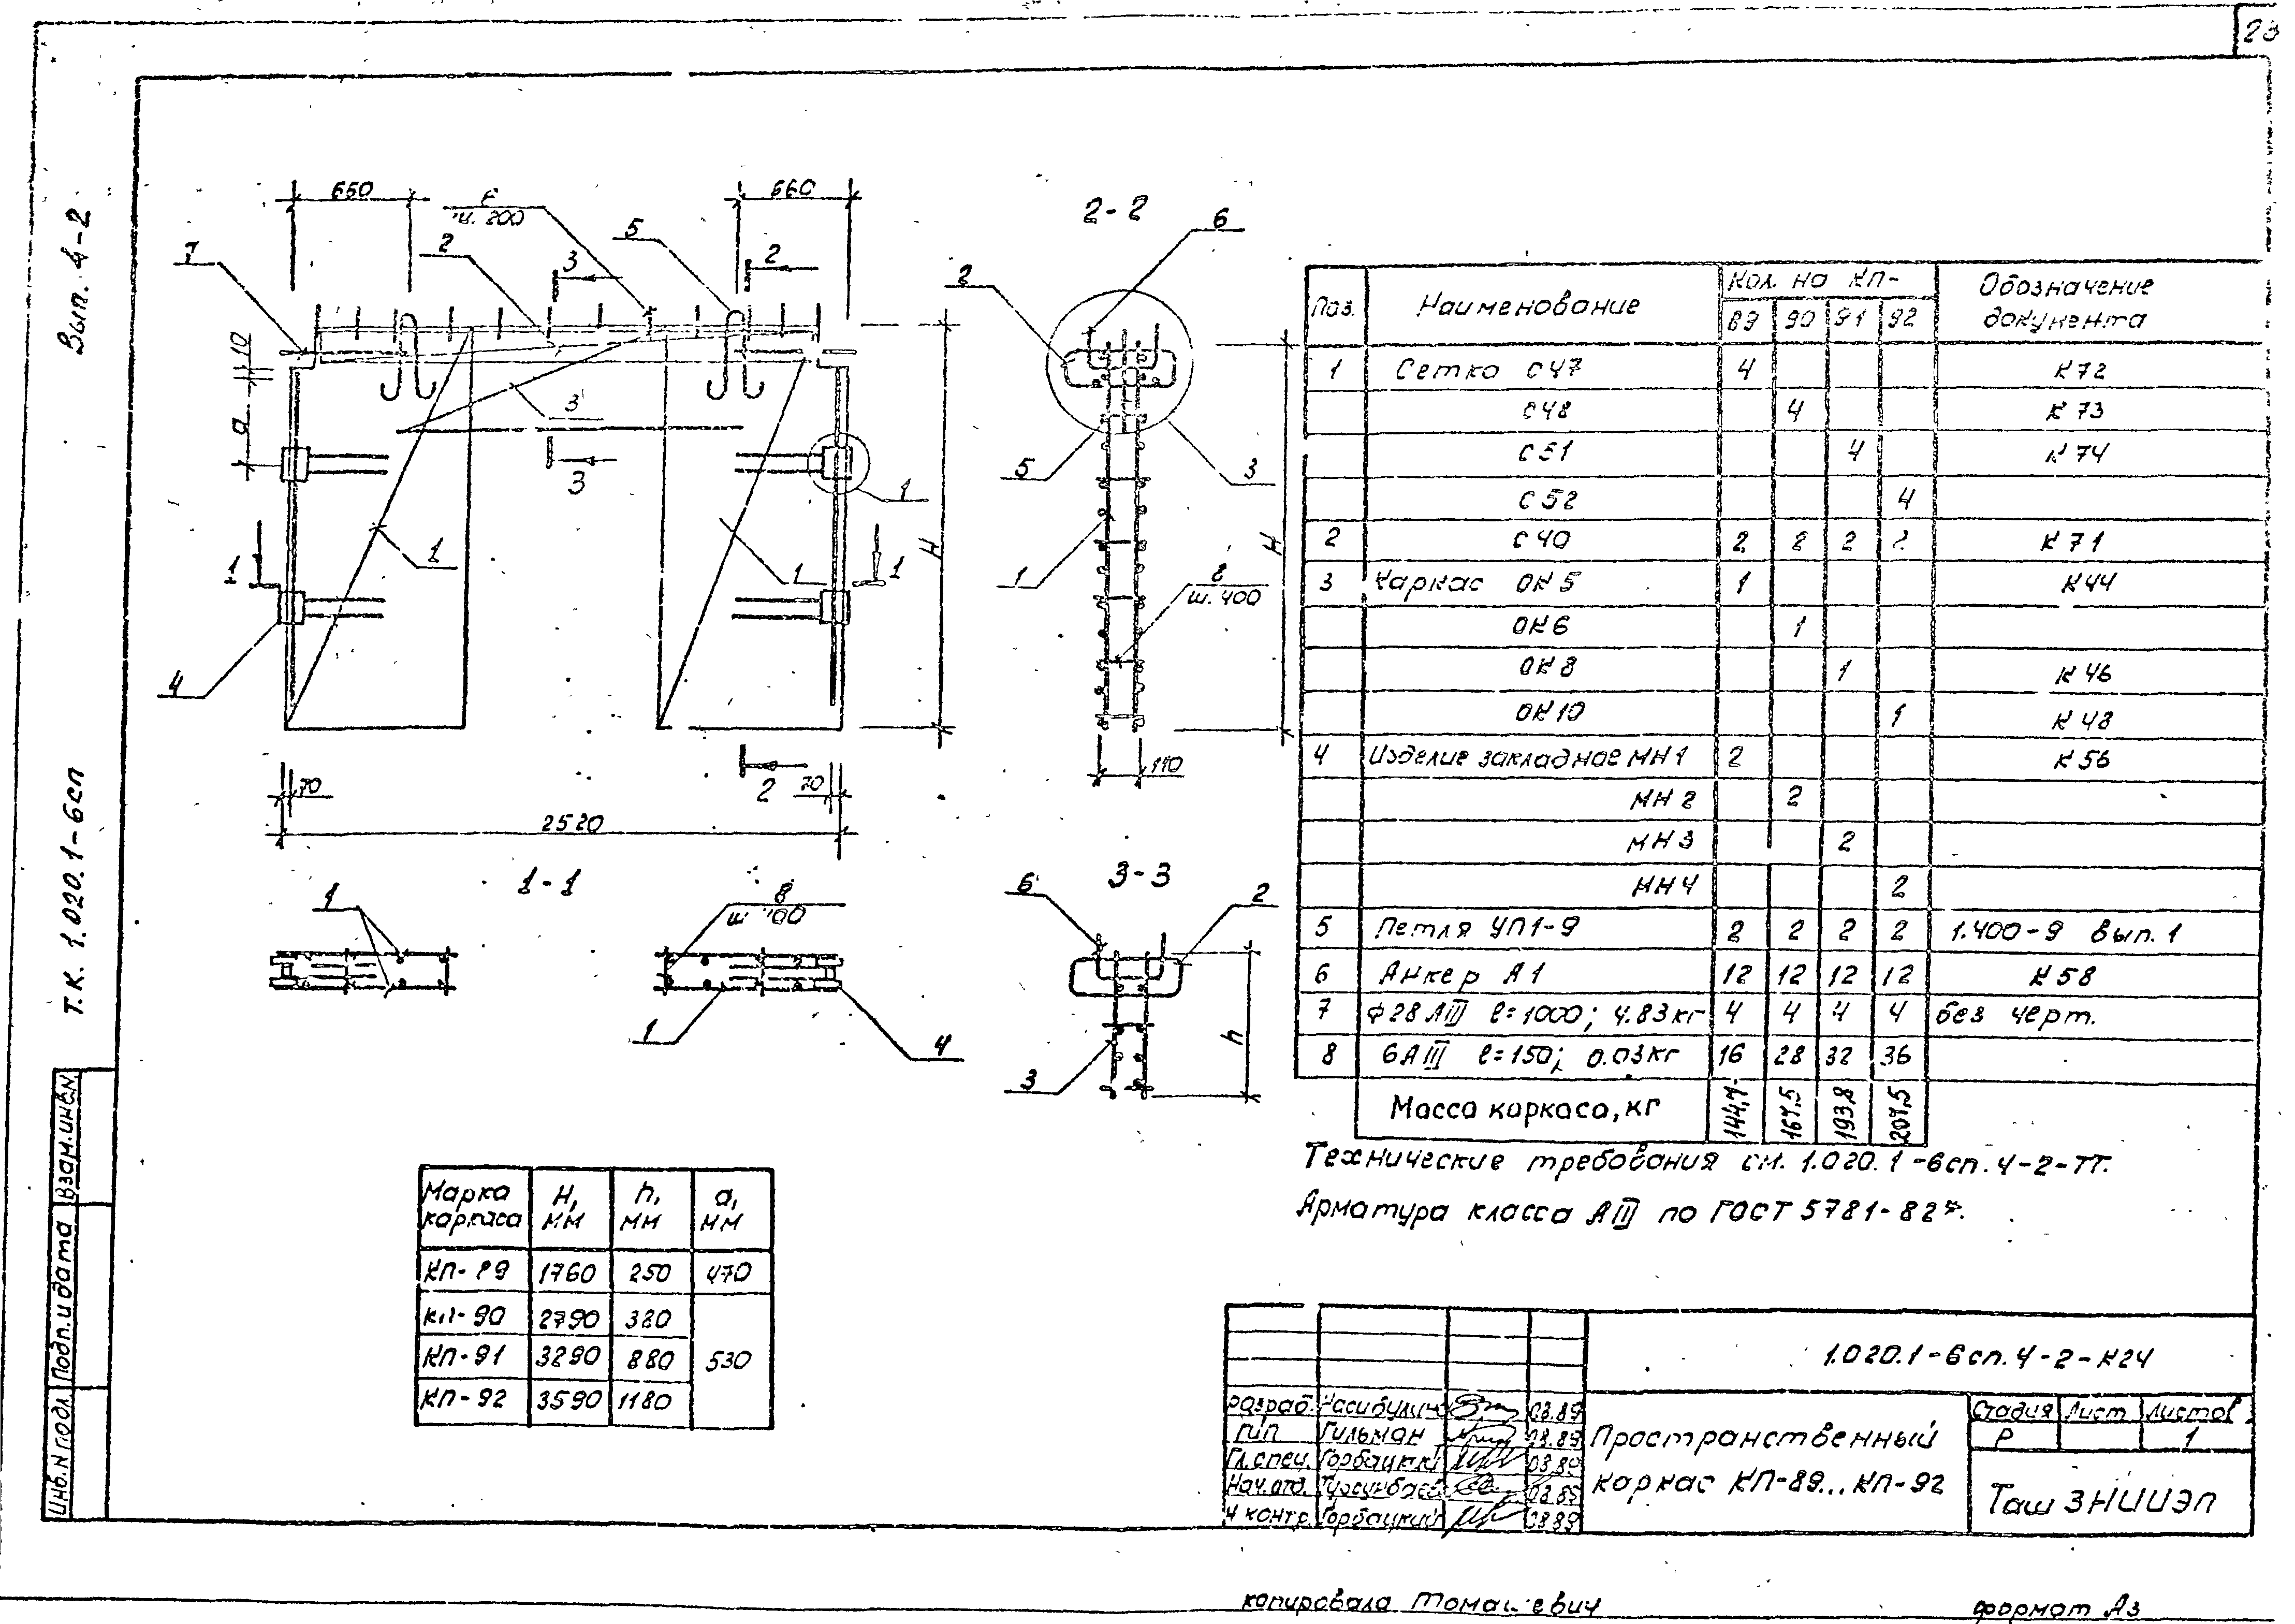 Вып. 4-2
Т.К. 1.020.1-6сп
Взам.инв.N
Подп. и дата
Инв.N подл.
660
660
ш. 200
7
2
5
3
2
10
а
3
3
1
1
1
1
1
4
H
70
70
2
2520
2-2
6
2
5
3
1
8
ш. 400
H
110
1-1
1
8
1
4
3-3
6
2
3
h
Поз. Наименование Кол. на КП- Обозначение документа
89 90 91 92
1 Сетка С47 4 К72
С48 4 К 73
С51 4 К 74
С 52 4
2 С 40 2 2 2 2 К 71
3 Каркас ОК 5 1 К44
ОК6 1
ОК 8 1 К 46
ОК10 1 К 48
4 Изделие закладное МН1 2 К 56
МН 2 2
МН3 2
МН4 2
5 Петля УП1-9 2 2 2 2 1.400-9 Вып. 1
6 Анкер А1 12 12 12 12 К 58
7 ф28 АIII ℓ=1000; 4.83кг 4 4 4 4 без черт.
8 6АIII ℓ=150; 0.03кг 16 28 32 36
Масса каркаса, кг 144,7 167,5 193,8 207,5
Технические требования см. 1.020.1-6сп. 4-2-ТТ.
Арматура класса АIII по ГОСТ 5781-82*.
Марка каркаса H, мм h, мм а, мм
КП-89 1760 250 470
КП-90 2790 380
КП-91 3290 880 530
КП-92 3590 1180
1.020.1-6сп. 4-2-К24
Разраб. Насибулин 03.89
ГИП Гильман 03.89
Гл.спец. Горбацкий 03.89
Нач.отд. Турсунбаев 03.89
Н контр. Горбацкий 03.89
Пространственный
каркас КП-89...КП-92
Стадия Лист Листов
Р 1
ТашЗНИИЭП
копировала
формат А3